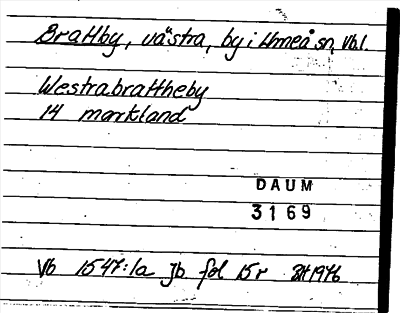 Brattby, västra, by i Umeå sn, Vbl.
Westrabrattheby
14 markland
DAUM
3169
Vb 1547:1a Jb fol 15r 1976